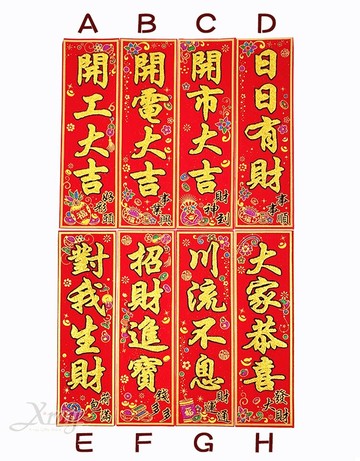 A B C D
開工大吉
好彩頭
開電大吉
事業興
開市大吉
財神到
日日有財
事事順
對我生財
荷包滿
招財進寶
錢多多
川流不息
財運通
大家恭喜
發大財
E F G H